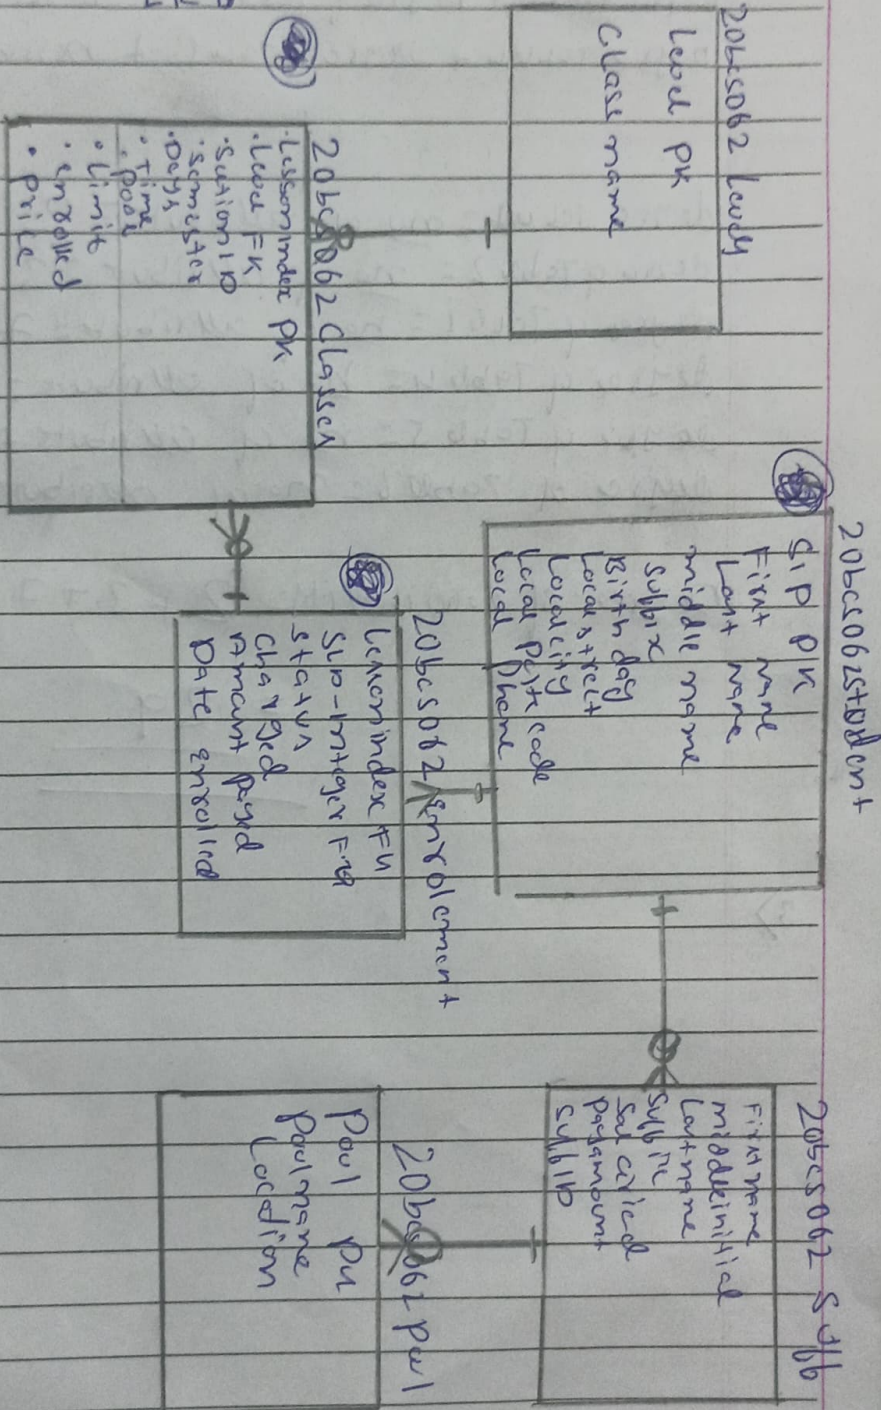 20bcs062 levels
Level PK
Class name
20bcs062 Classes
• Lesson index PK
• Level FK
• Section ID
• Semester
• Days
• Time
• Pool
• Limit
• enrolled
• price
20bcs062 student
SIP PK
First name
Last name
middle name
suffix
Birth day
Local street
Local city
Local Poste code
Local Phone
20bcs062 Enrolement
Lesson index FK
status
charged
Amount payed
Date enrolled
20bcs062 Staff
First name
middle initial
Last name
Suffix
Payamount
20bcs062 Pool
Pool PK
Pool name
Location